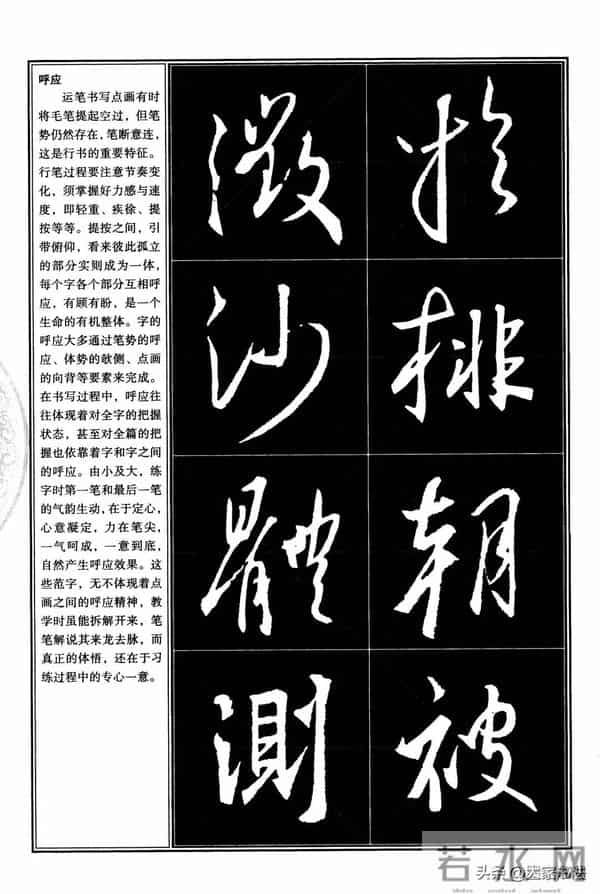 呼应
运笔书写点画有时
将毛笔提起空过，但笔
势仍然存在，笔断意连，
这是行书的重要特征。
行笔过程要注意节奏变
化，须掌握好力感与速
度，即轻重、疾徐、提
按等等。提按之间，引
带俯仰，看来彼此孤立
的部分实则成为一体，
每个字各个部分互相呼
应，有顾有盼，是一个
生命的有机整体。字的
呼应大多通过笔势的呼
应、体势的欹侧、点画
的向背等要素来完成。
在书写过程中，呼应往
往体现着对全字的把握
状态，甚至对全篇的把
握也依靠着字和字之间
的呼应。由小及大，练
字时第一笔和最后一笔
的气韵生动，在于定心，
心意凝定，力在笔尖，
一气呵成，一意到底，
自然产生呼应效果。这
些范字，无不体现着点
画之间的呼应精神，教
学时虽能拆解开来，笔
笔解说其来龙去脉，而
真正的体悟，还在于习
练过程中的专心一意。
於
排
朝
被
沙
體
測
若水网
头条